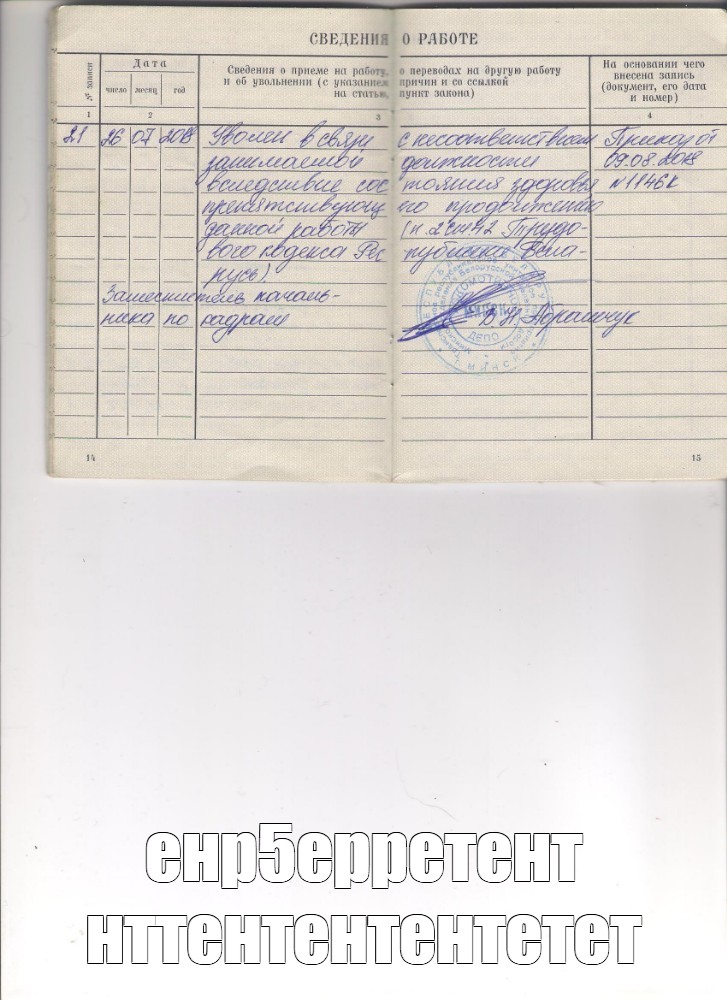 СВЕДЕНИЯ О РАБОТЕ
№ записи
Дата
число месяц год
Сведения о приеме на работу, о переводах на другую работу
и об увольнении (с указанием причин и со ссылкой
на статью, пункт закона)
На основании чего
внесена запись
(документ, его дата
и номер)
1 2 3 4
21 26 07 2018 Уволен в связи с несоответствием Приказ от
занимаемой должности 09.08.2018
вследствие состояния здоровья №1146к
препятствующ его продолжению
данной работы (п.2 ст42 Трудо-
вого кодекса Рес- публики Бела-
русь).
Заместитель началь-
ника по кадрам В.Н. Абрамчук
ДЕПО
МИНСК
14 15
енр5ерретент
нттентентентетет